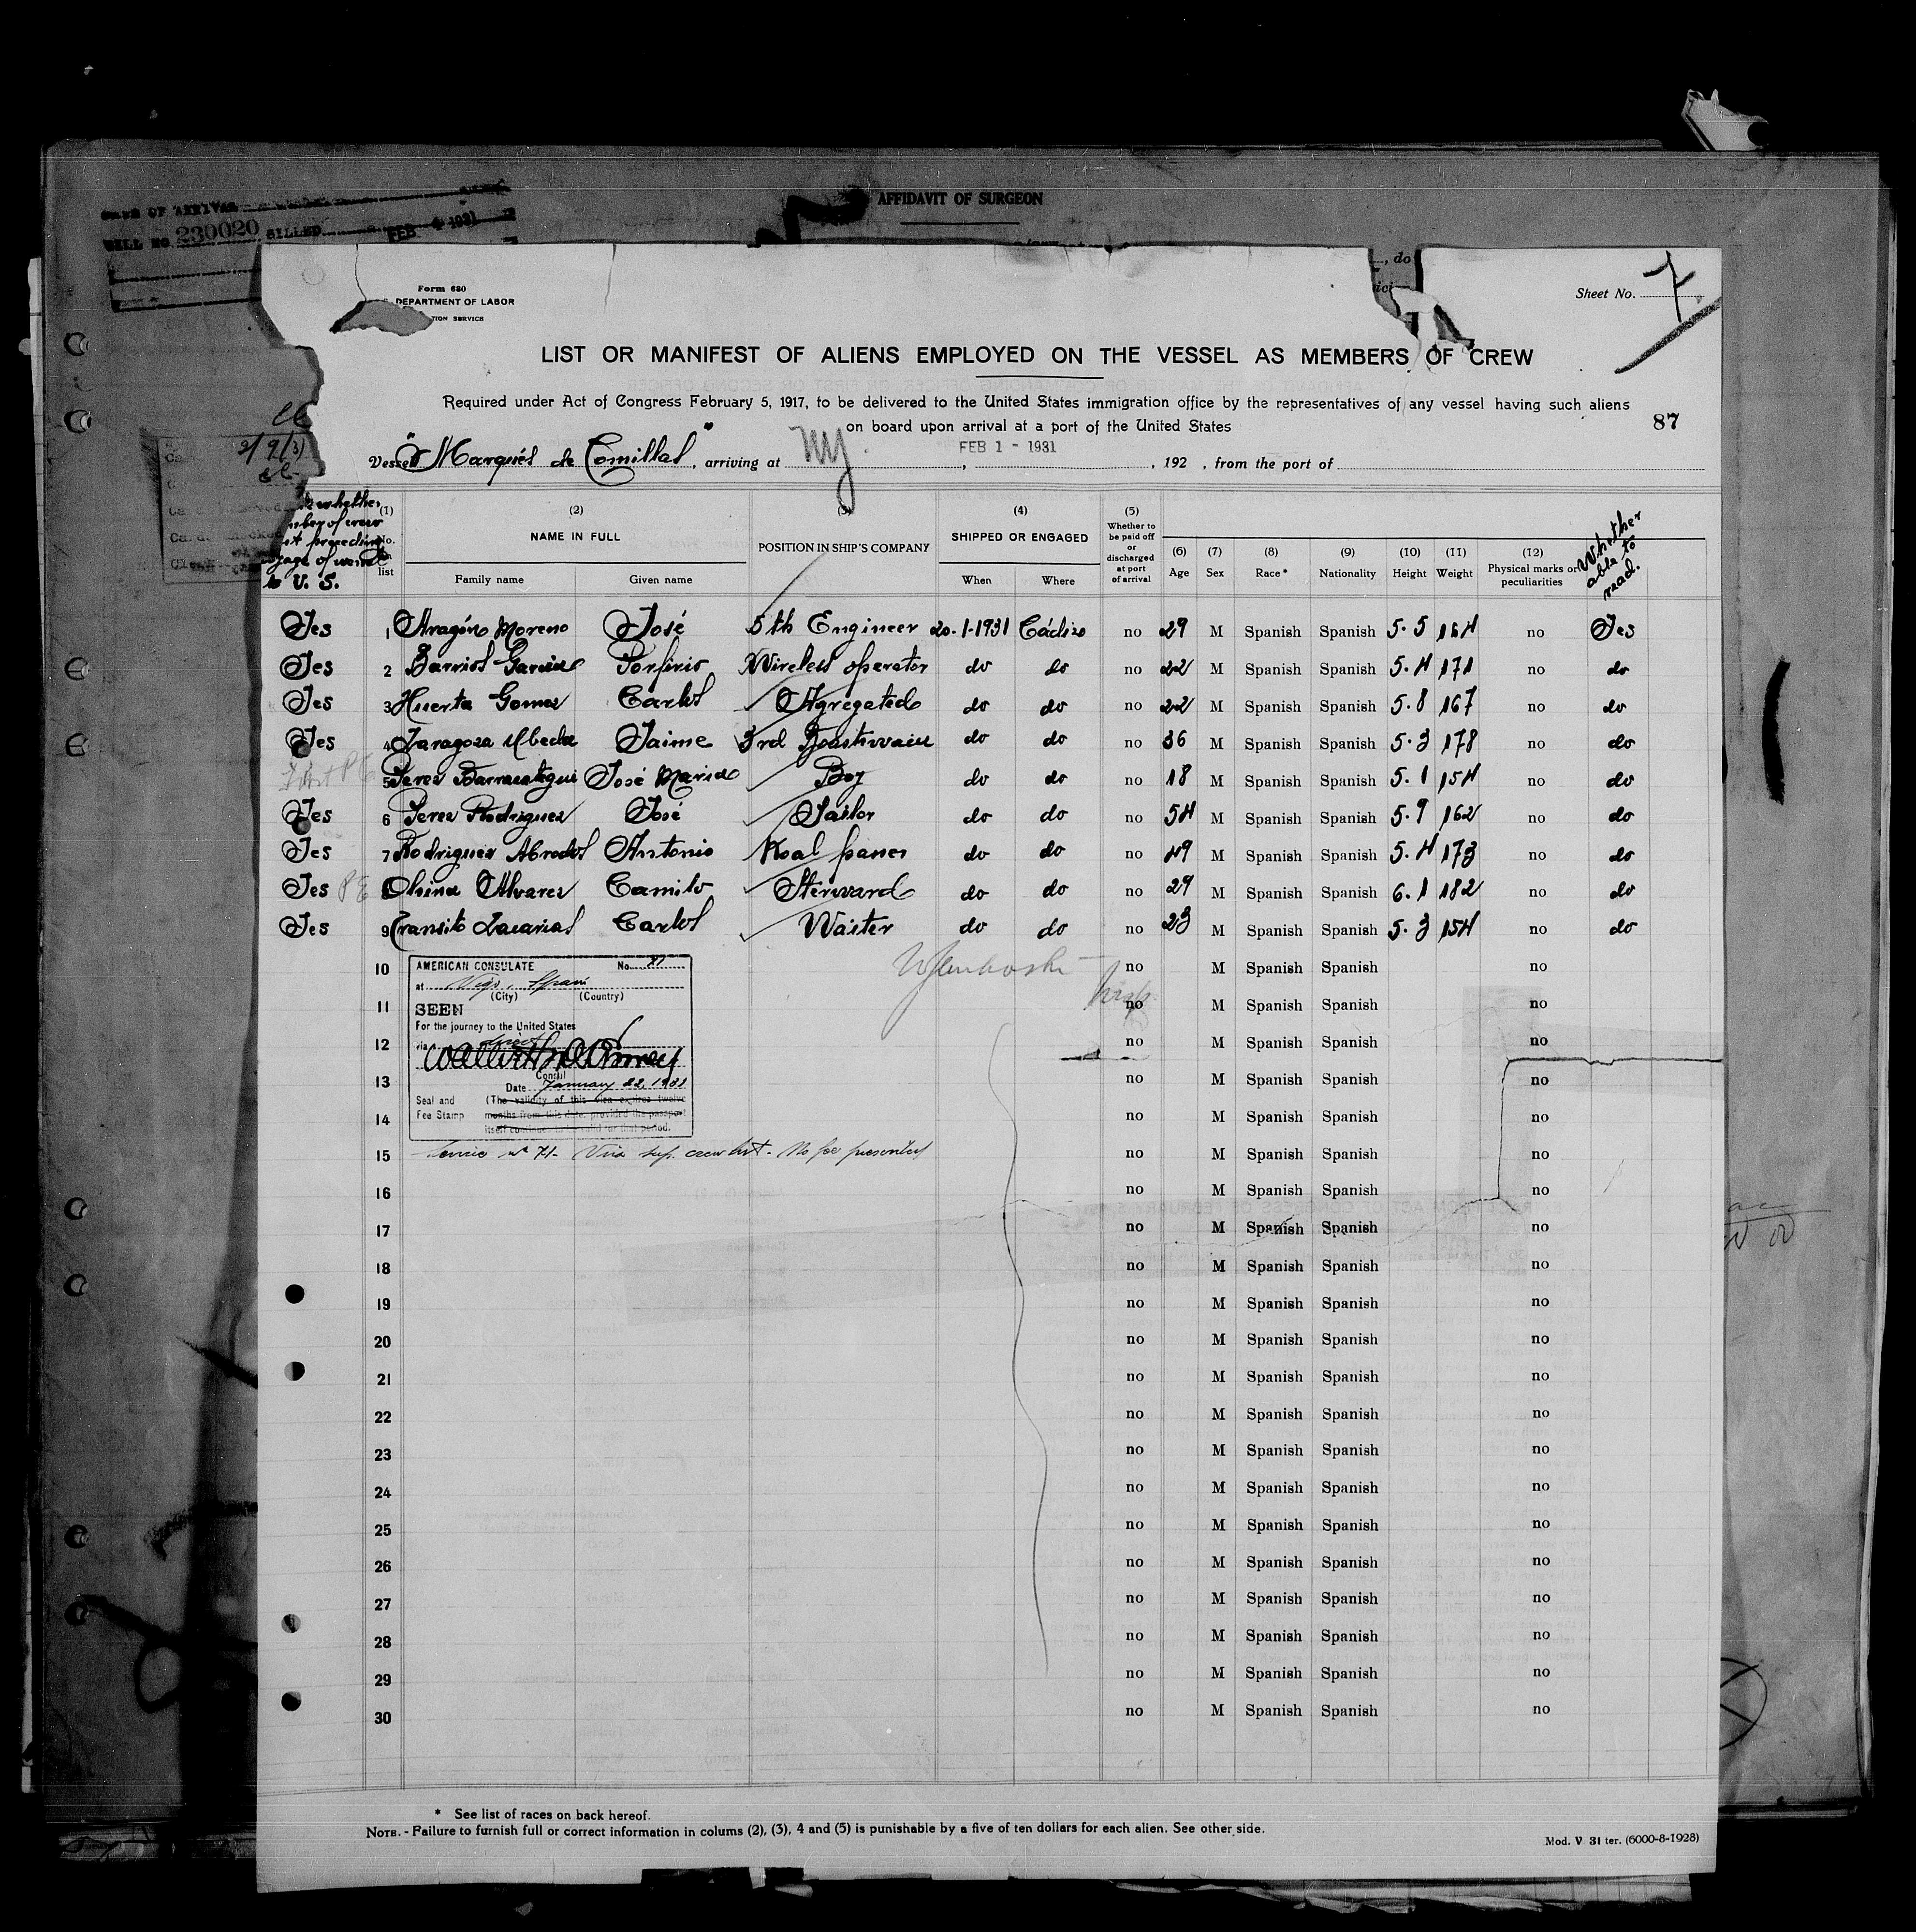 AFFIDAVIT OF SURGEON
BILL NO. 230020 BILLED FEB 4 1931
Form 680
DEPARTMENT OF LABOR
TION SERVICE
, do
Sheet No. 7
LIST OR MANIFEST OF ALIENS EMPLOYED ON THE VESSEL AS MEMBERS OF CREW
Required under Act of Congress February 5, 1917, to be delivered to the United States immigration office by the representatives of any vessel having such aliens
on board upon arrival at a port of the United States
87
2/9/31
Vessel "Marqués de Comillas", arriving at NY, FEB 1 - 1931, 192 , from the port of
whether
of crew
preceding
of vessel
to U. S.
(1) No. on list
(2) NAME IN FULL
Family name Given name
(3) POSITION IN SHIP'S COMPANY
(4) SHIPPED OR ENGAGED
When Where
(5) Whether to be paid off or discharged at port of arrival
(6) Age
(7) Sex
(8) Race*
(9) Nationality
(10) Height
(11) Weight
(12) Physical marks or peculiarities
Whether able to read.
Yes 1 Aragón Moreno José 5th Engineer 20-1-1931 Cádiz no 29 M Spanish Spanish 5.5 164 no Yes
Yes 2 Barrios Garcia Porfirio Wireless operator do do no 22 M Spanish Spanish 5.4 171 no do
Yes 3 Huerta Gomez Carlos Agregated do do no 22 M Spanish Spanish 5.8 167 no do
Yes 4 Zaragoza Ubeda Jaime 3rd Boastwain do do no 36 M Spanish Spanish 5.3 178 no do
5 Perez Barrueategui José Maria Boy do do no 18 M Spanish Spanish 5.1 154 no do
Yes 6 Perez Rodriguez José Sailor do do no 54 M Spanish Spanish 5.9 162 no do
Yes 7 Rodriguez Antonio Koal paner do do no 49 M Spanish Spanish 5.4 173 no do
Yes 8 Alvarez Camilo Sterward do do no 29 M Spanish Spanish 6.1 182 no do
Yes 9 Transito Zacarias Carlos Waiter do do no 23 M Spanish Spanish 5.3 154 no do
10 no M Spanish Spanish no
11 no M Spanish Spanish no
12 no M Spanish Spanish no
13 no M Spanish Spanish no
14 no M Spanish Spanish no
15 no M Spanish Spanish no
16 no M Spanish Spanish no
17 no M Spanish Spanish no
18 no M Spanish Spanish no
19 no M Spanish Spanish no
20 no M Spanish Spanish no
21 no M Spanish Spanish no
22 no M Spanish Spanish no
23 no M Spanish Spanish no
24 no M Spanish Spanish no
25 no M Spanish Spanish no
26 no M Spanish Spanish no
27 no M Spanish Spanish no
28 no M Spanish Spanish no
29 no M Spanish Spanish no
30 no M Spanish Spanish no
AMERICAN CONSULATE No.
at Vigo, Spain
(City) (Country)
SEEN
For the journey to the United States
via direct
Consul
Date January 22, 1931
Seal and Fee Stamp
(The validity of this visa expires twelve
months from this date provided the passport
itself continues valid for that period.
Service nº 71- Visa sup. crew list - No fee prescribed
* See list of races on back hereof.
NOTE. - Failure to furnish full or correct information in colums (2), (3), 4 and (5) is punishable by a five of ten dollars for each alien. See other side.
Mod. V 31 ter. (6000-8-1928)